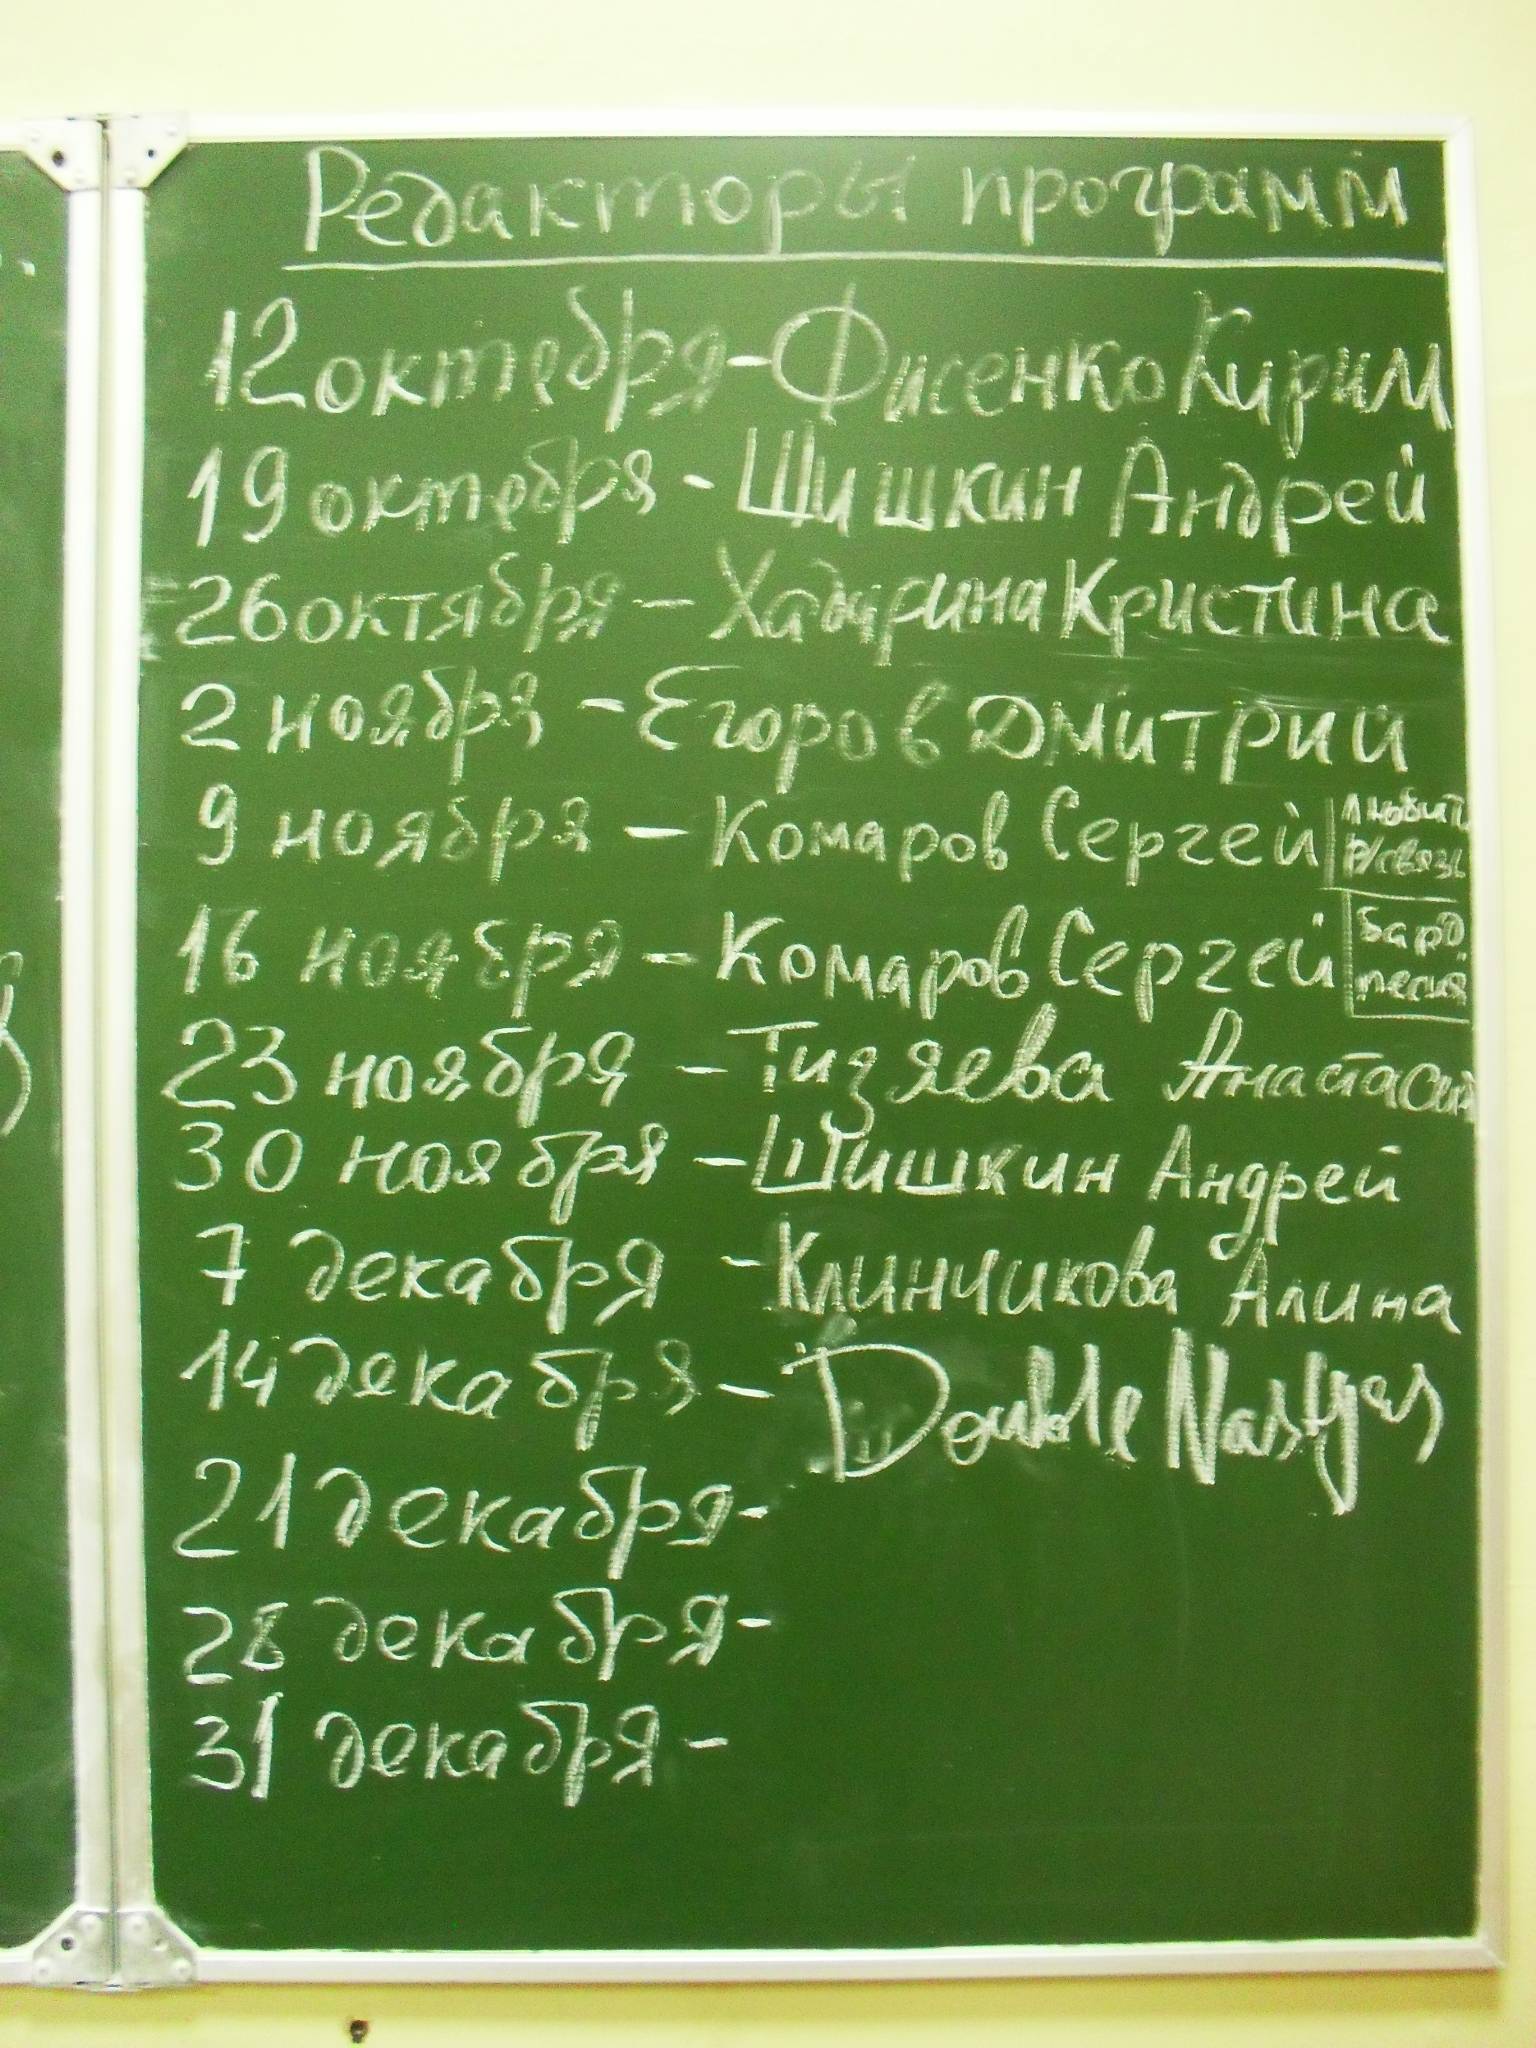 Редакторы программ
12 октебря - Фисенко Кирим
19 октебря - Шишкин Андрей
26 октября - Кристина
2 ноября - Егоров Дмитрий
9 ноября - Комаров Сергей
р/связь
16 ноября - Комаров Сергей
бард
песня
23 ноября - Тизяева Анастасия
30 ноября - Шишкин Андрей
7 декабря - Клинчикова Алина
14 декабря - Double Nastyas
21 декабря -
28 декабря -
31 декабря -